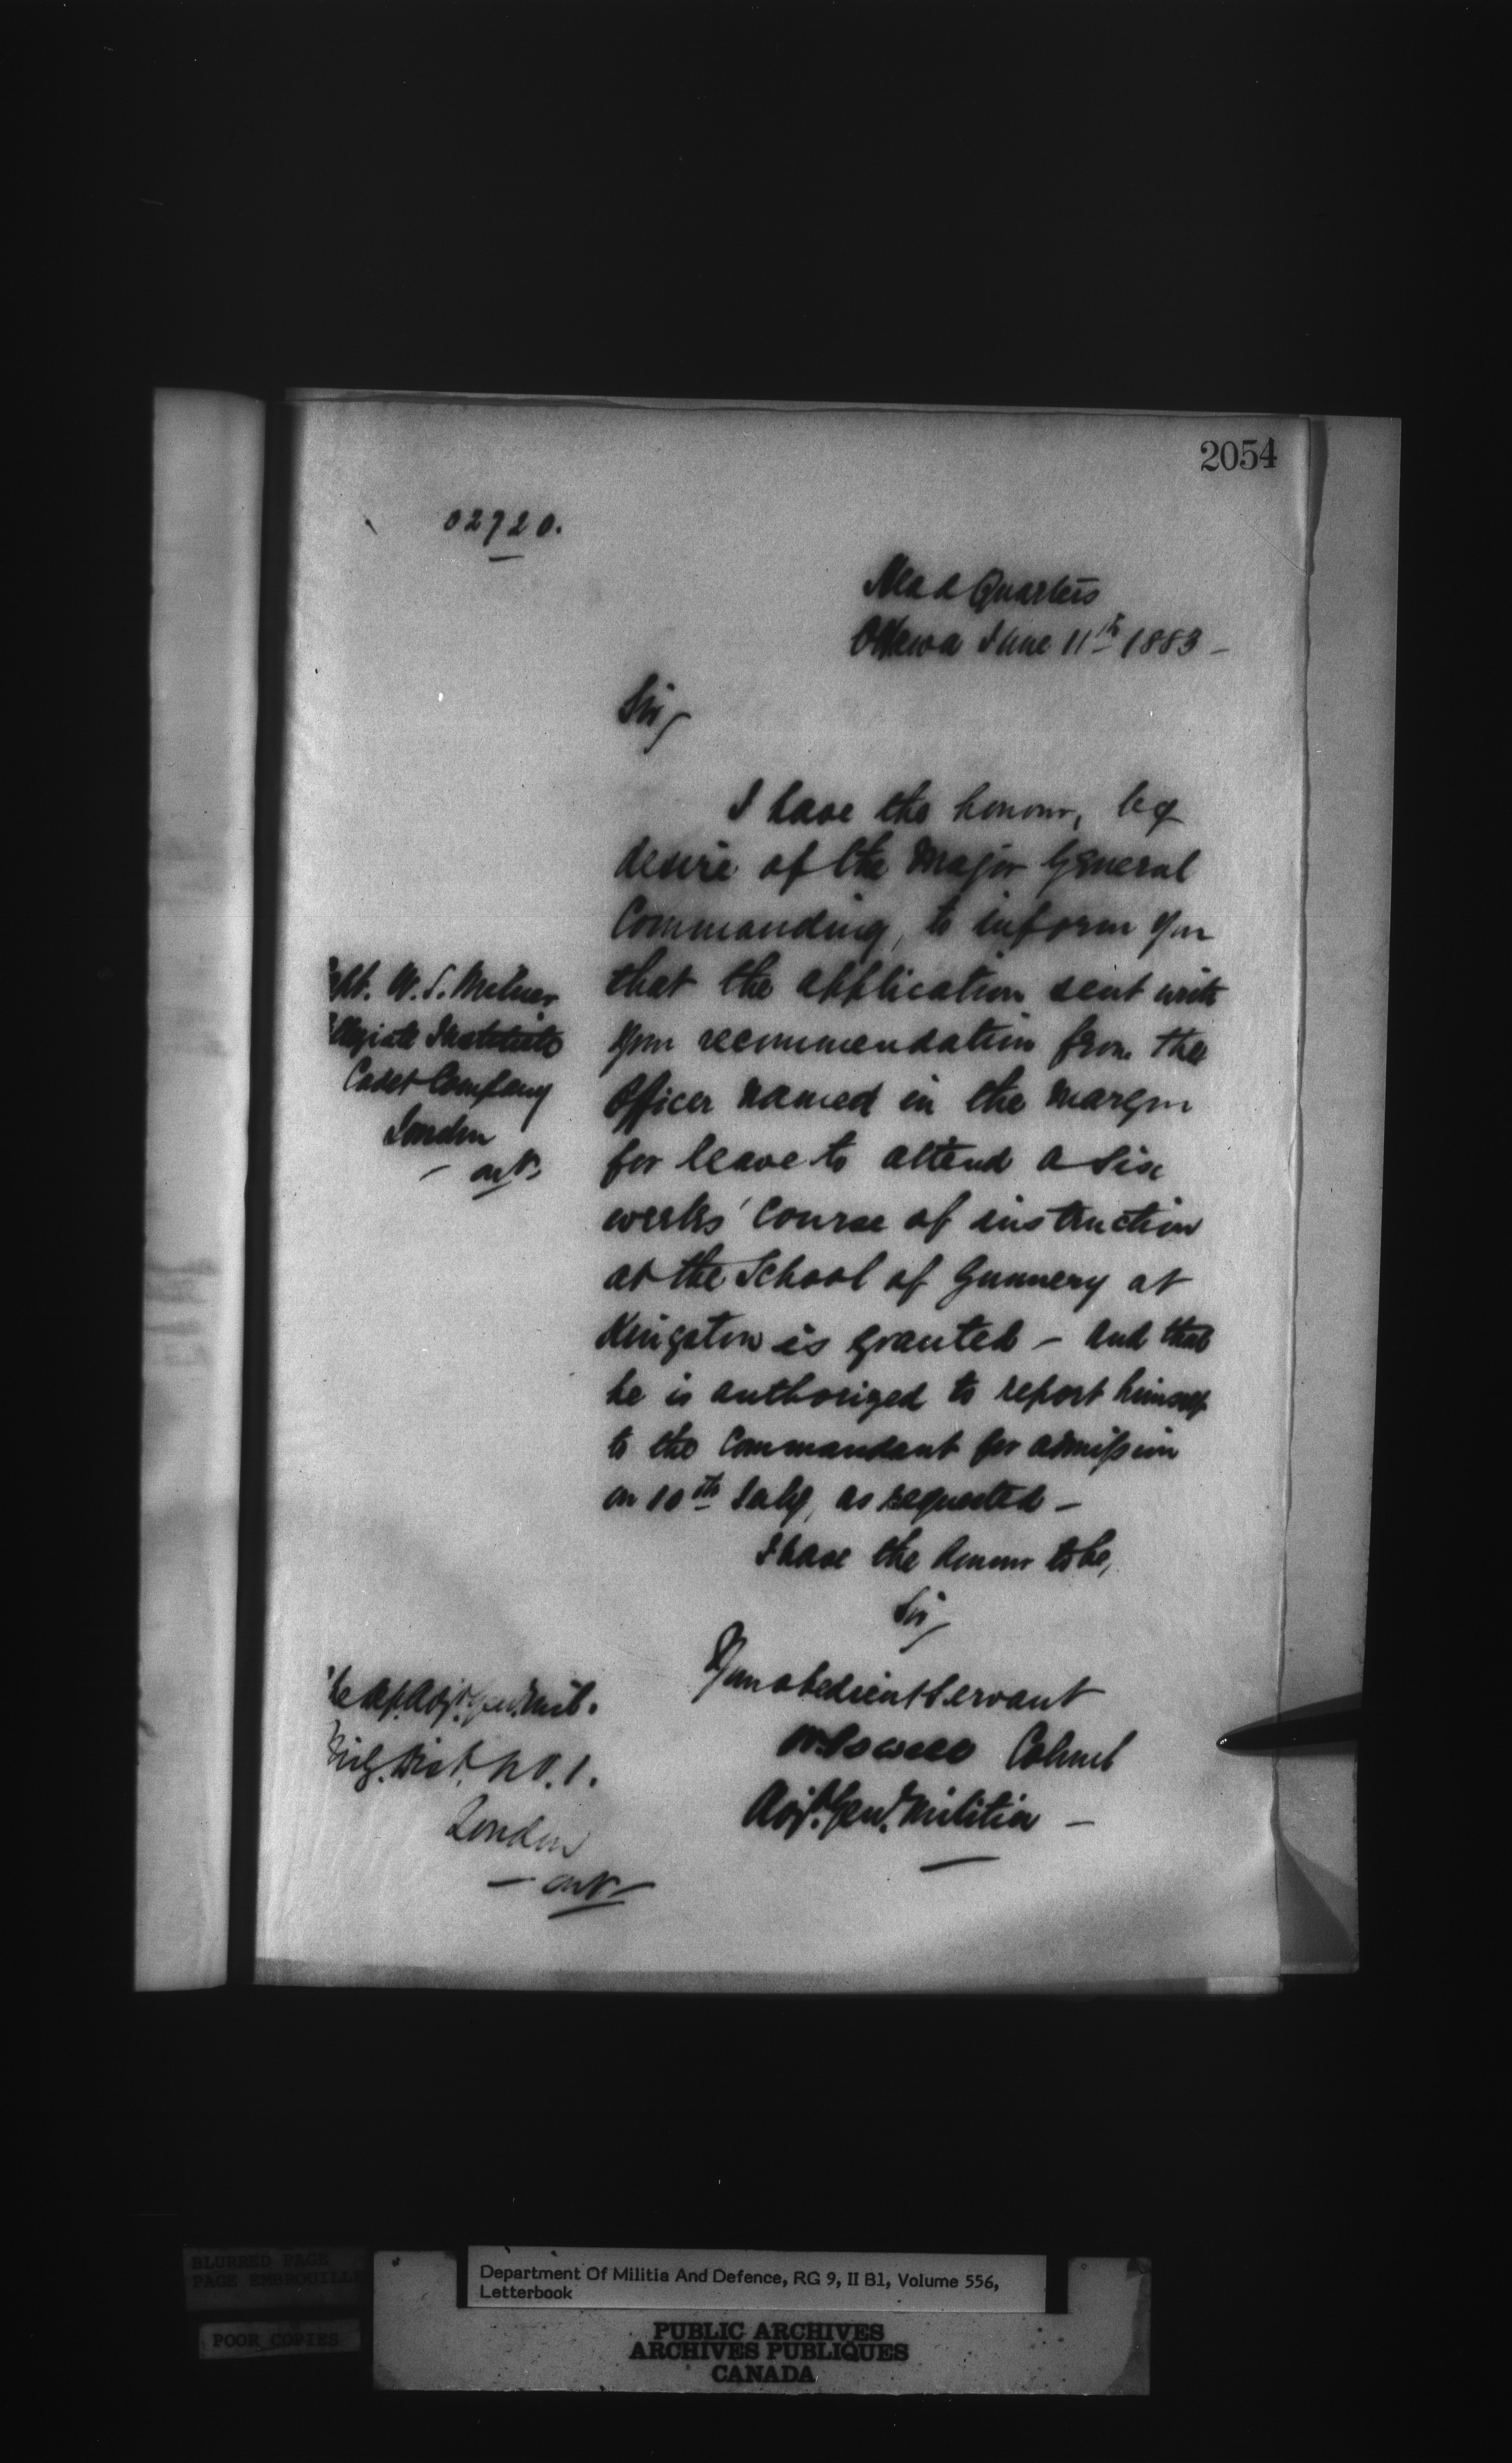 2054
02720.
Head Quarters
Ottawa June 11th 1883 -
Sir,
I have the honour, by
desire of the Major General
Commanding, to inform you
that the application sent with
your recommendation from the
Officer named in the margin
for leave to attend a six
weeks' course of instruction
at the School of Gunnery at
Kingston is granted - and that
he is authorized to report himself
to the Commandant for admission
on 10th July, as requested -
I have the honour to be,
Sir,
Your obedient Servant
W. Powell Colonel
Adjt. Genl. Militia -
pt. W. S. Milner
llegiate Institute
Cadet Company
London
- Ont.
e Dp. Adjt. Genl. Mil.
Mily. Dist. No. 1.
London
- Ont -
BLURRED PAGE
PAGE EMBROUILLE
POOR COPIES
Department Of Militia And Defence, RG 9, II B1, Volume 556,
Letterbook
PUBLIC ARCHIVES
ARCHIVES PUBLIQUES
CANADA